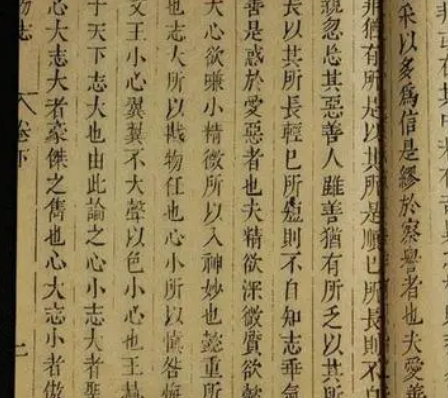 采以多為信是繆於察譽者也夫愛善
非猶有所是以其所是順己所長則不自
親忽忘其惡善人雖善猶有所乏以其所
長以其所長輕己所短則不自知志乖氣
善是惑於愛惡者也夫精欲深微質欲懿
大心欲嗛小精微所以入神妙也懿重所
也志大所以戡物任也心小所以慎咎悔
文王小心翼翼不大聲以色小心也王赫
于天下志大也由此論之心小志大者聖
心大志大者豪傑之雋也心大志小者傲
物志 卷下